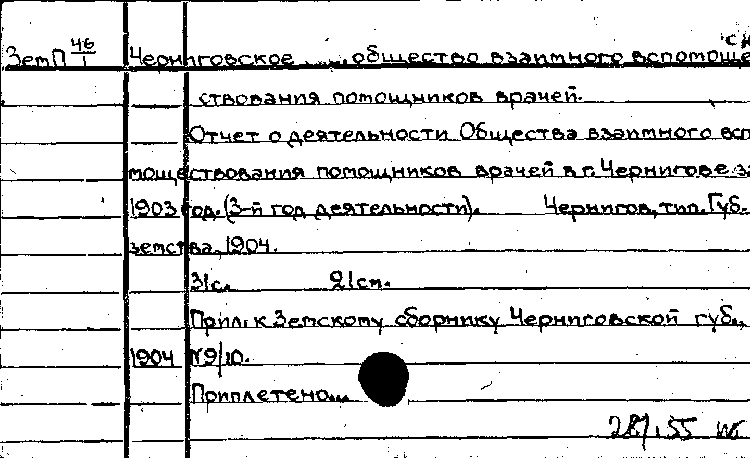 ЗемП 46/1 Черниговское ..... общество взаимного вспомоще
ствования помощников врачей.
Отчет о деятельности Общества взаимного всп
моществования помощников врачей в г. Чернигове за
1903 год. (3-й год деятельности). Чернигов, тип. Губ.
земства, 1904.
31с. 21см.
Прил. к Земскому сборнику Черниговской губ.,
1904 №9/10.
Приплетено...